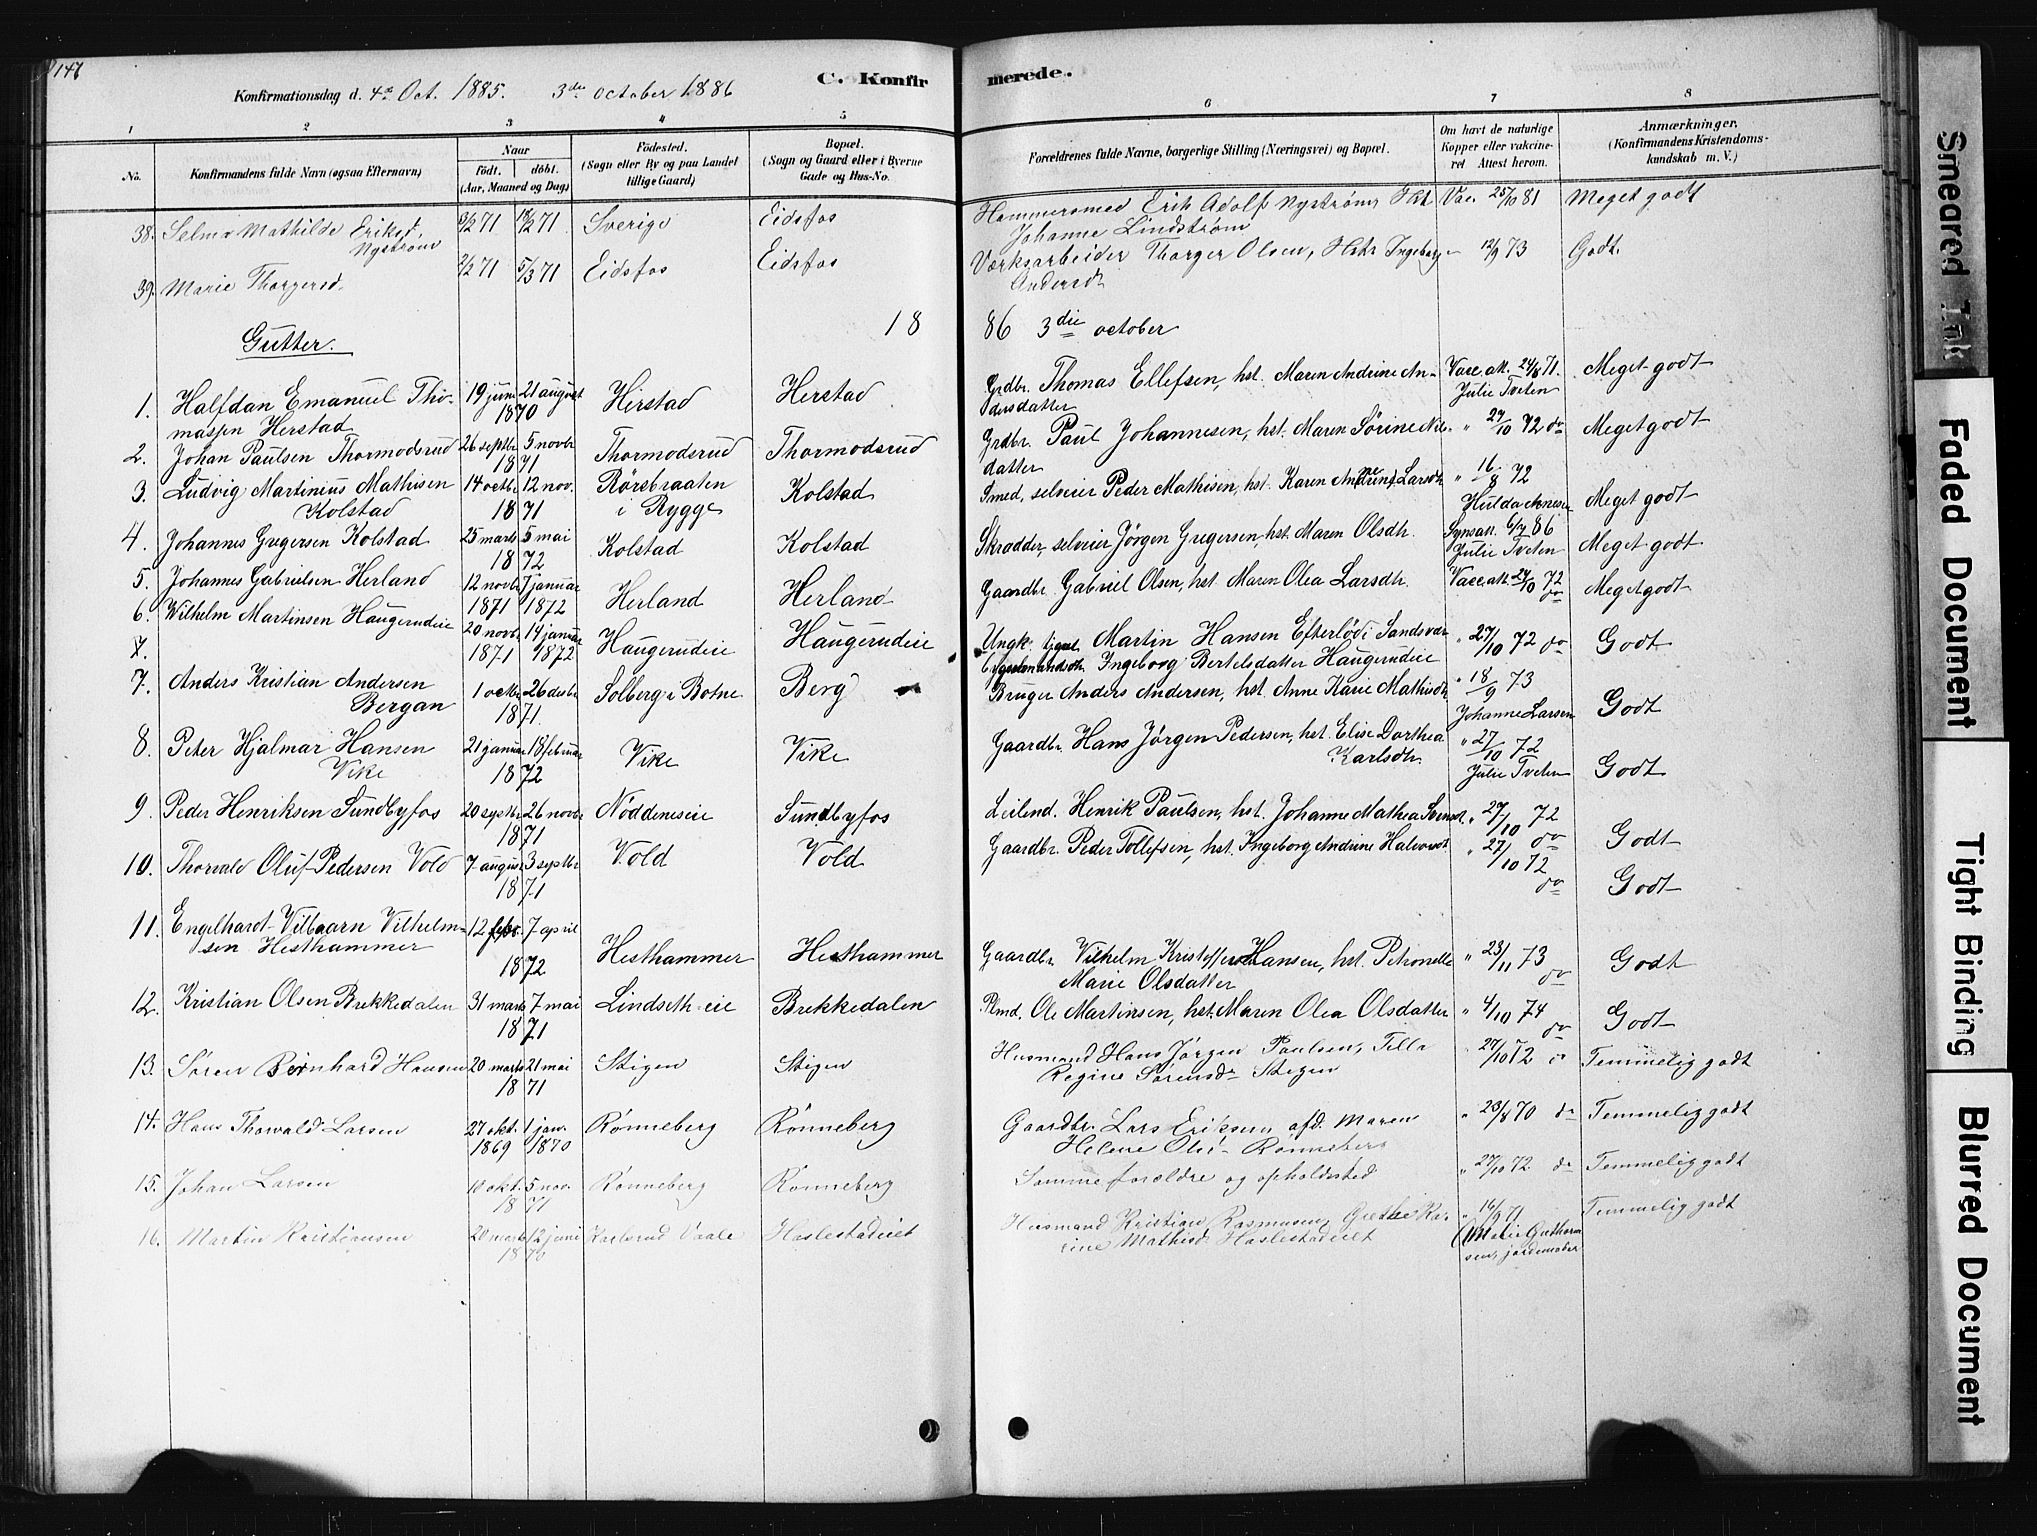 147
Konfirmationsdag d. 4de Oct. 1885. 3die october 1886
C. Konfir merede.
1 2 3 4 5 6 7 8
No.
Konfirmandens fulde Navn (ogsaa Efternavn)
Naar
födt. döbt.
(Aar, Maaned og Dag)
Födested.
(Sogn eller By og paa Landet
tillige Gaard)
Bopæl.
(Sogn og Gaard eller i Byerne
Gade og Hus-No.
Forældrenes fulde Navne, borgerlige Stilling (Næringsvei) og Bopæl.
Om havt de naturlige
Kopper eller vakcine-
ret Attest herom.
Anmærkninger.
(Konfirmandens Kristendoms-
kundskab m. V.)
38. Selma Mathilde Eriksd. 71 71 Sverige Eidsfos Hammersmed Erik Adolf Nystrøm, Vac. 25/10 81 Meget godt
Nystrøm Johanne Lindstrøm
39. Marie Thorgersd. 2/2 71 5/3 71 Eidsfos Eidsfos Værksarbeider Thorger Olsen, Hstr Ingeborg 12/9 73 Godt.
Andersdt
18 86 3die october
Gutter.
1. Halfdan Emanuel Tho- 19 juni 21 august Herstad Herstad Grdbr. Thomas Ellefsen, hst. Maren Andrine An- Vacc. att. 24/8 71. Meget godt
massen Herstad 1870 dersdatter Julie Tveten
2. Johan Paulsen Thormodsrud 26 septbr 5 novbr Thormodsrud Thormodsrud Grdbr. Paul Johannesen, hst. Maren Sörine Nils- " 27/10 72 do Meget godt
1871 datter
3. Ludvig Martinius Mathisen 14 octbr 12 nov. Rörebraaten Kolstad Smed, selveier Peder Mathisen, hst. Karen Larsdt. " 16/8 72 Meget godt
Kolstad 1871 i Rygge Hulda
4. Johannes Gregersen Kolstad 25 marts 5 mai Kolstad Kolstad Skrædder, selveier Jörgen Gregersen, hst. Maren Olsdtr. Synsatt. 6/7 86 Meget godt
1872 Julie Tveten
5. Johannes Gabrielsen Herland 12 novbr 7 januar Herland Herland Gaardbr. Gabriel Olsen, hst. Maren Olea Larsdtr. Vacc. att. 27/10 72 do Meget godt
1871 1872
6. Wilhelm Martinsen Haugerudeie 20 novbr 14 januar Haugerudeie Haugerudeie Ungk. Martin Hansen Efterlöd i Sandsvær " 27/10 72 do Godt
1871 1872 Ingeborg Bertelsdatter Haugerudeie
7.
7. Anders Kristian Andersen 1 octbr 26 desbr Solberg i Botne Berg Bruger Anders Andersen, hst. Anne Karie Mathisdt. " 18/9 73 Godt
Bergan 1871. Johanne Larsen
8. Peter Hjalmar Hansen 21 januar 18 februar Vike Vike Gaardbr. Hans Jörgen Pedersen, hst. Elise Dorthea " 27/10 72 Godt
Vike 1872 Karlsdtr. Julie Tveten
9. Peder Henriksen Sundbyfos 20 septbr 26 novbr Nöddeneseie Sundbyfos Leilend. Henrik Paulsen, hst. Johanne Mathea " 27/10 72 do Godt
1871
10. Thorvald Oluf Pedersen Vold 7 august 3 septbr Vold Vold Gaardbr. Peder Tollefsen, hst. Ingeborg Andrine Halvorsdt. " 27/10 72 do Godt
1871
11. Engelhardt Vilhelm- 12 febr. 7 april Hesthammer Hesthammer Gaardbr. Vilhelm Kristoffer Hansen, hst. Petronelle " 23/11 73 do Godt
sen Hesthammer 1872 Marie Olsdatter
12. Kristian Olsen Brekkedalen 31 marts 7 mai Lindseth eie Brekkedalen Plmd. Ole Martinsen, hst. Maren Olea Olsdatter " 4/10 74 do Godt
1871
13. Søren Bernhard Hansen 20 marts 21 mai Stigen Stigen Husmand Hans Jørgen Paulsen, 27/10 72 do Temmelig godt
1871 Regine Sørensdr Stigen
14. Hans Thorvald Larsen 27 okt. 1 jan. Rønneberg Rønneberg Gaardbr. Lars Eriksen, afd. Maren " 23/8 70 do Temmelig godt
1869 1870 Helene Rønneberg
15. Johan Larsen 10 okt. 5 nov. Rønneberg Rønneberg Samme foreldre og opholdssted " 27/10 72 do Temmelig godt
1871
16. Martin Kristiansen 20 marts 12 juni Vaale Haslestadeiet Husmand Kristian Rasmusen, Grethe Ka- " 16/9 71 Temmelig godt
1870 rine Mathisd. Haslestadeiet (Marie Guthorm
sen, jordemoder
Smeared Ink
Faded Document
Tight Binding
Blurred Document